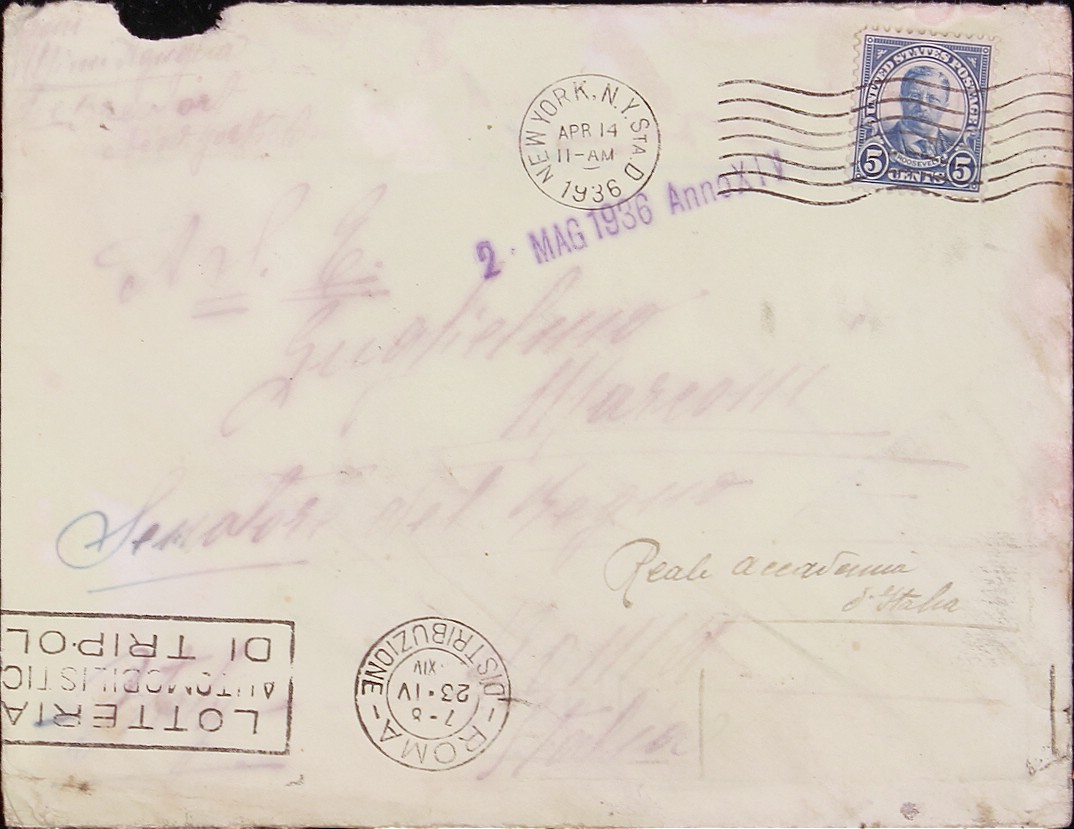 UNITED STATES POSTAGE
ROOSEVELT
5 CENTS 5
NEW YORK, N.Y. STA. D
APR 14
11-AM
1936
2 · MAG 1936 Anno XIV
A S. E.
Guglielmo
Marconi
Senatore del Regno
Reale Accademia
d'Italia
Roma
Italia
ROMA - DISTRIBUZIONE -
7-8
23·IV
XIV
LOTTERIA
AUTOMOBILISTIC
DI TRIPOL